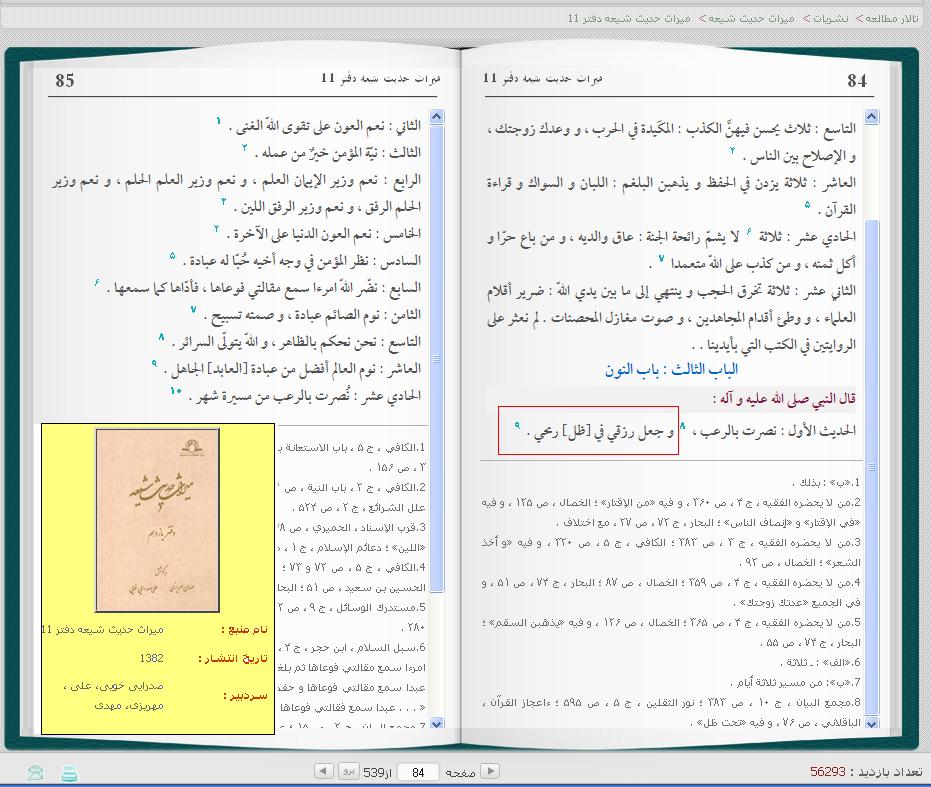 تالار مطالعه > نشریات > میراث حدیث شیعه > میراث حدیث شیعه دفتر 11
84
میراث حدیث شیعه دفتر 11
التاسع : ثلاث يحسن فيهنَّ الكذب : المكَيدة في الحرب ، و وعدك زوجتك ،
و الإصلاح بين الناس . ۴
العاشر : ثلاثة يزدن في الحفظ و يذهبن البلغم : اللبان و السواك و قراءة
القرآن . ۵
الحادي عشر : ثلاثة ۶ لا يشمّ رائحة الجنة : عاق والديه ، و من باع حرّا و
أكل ثمنه ، و من كذب على اللّه متعمدا ۷ .
الثاني عشر : ثلاثة تخرق الحجب و ينتهي إلى ما بين يدي اللّه : ضرير أقلام
العلماء ، و وطئ أقدام المجاهدين ، و صوت مغازل المحصنات . لم نعثر على
الروايتين في الكتب التي بأيدينا . .
الباب الثالث : باب النون
قال النبي صلى الله عليه و آله :
الحديث الأول : نصرت بالرعب ، ۸ و جعل رزقي في [ظل] رمحي . ۹
1.«ب» : بذلك .
2.من لا يحضره الفقيه ، ج ۴ ، ص ۳۶۰ ، و فيه «من الإقتار» ؛ الخصال ، ص ۱۲۵ ، و فيه
«في الإقتار» و «إنصاف الناس» ؛ البحار ، ج ۷۲ ، ص ۲۷ ، مع اختلاف .
3.من لا يحضره الفقيه ، ج ۴ ، ص ۳۸۲ ؛ الكافي ، ج ۵ ، ص ۳۲۰ ، و فيه «و أخذ
الشعر» ؛ الخصال ، ص ۹۲ .
4.من لا يحضره الفقيه ، ج ۴ ، ص ۳۵۹ ؛ الخصال ، ص ۸۷ ؛ البحار ، ج ۷۴ ، ص ۵۱ ، و
في الجميع «عدتك زوجتك» .
5.من لا يحضره الفقيه ، ج ۴ ، ص ۳۶۵ ؛ الخصال ، ص ۱۲۶ ، و فيه «يذهبن السقم» ؛
البحار ، ج ۷۴ ، ص ۵۵ .
6.«الف» : ـ ثلاثة .
7.«ب»: من مسير ثلاثة أيام .
8.مجمع البيان ، ج ۱۰ ، ص ۳۸۳ ؛ نور الثقلين ، ج ۵ ، ص ۵۹۵ ؛ ءاعجاز القرآن ،
الباقلاني ، ص ۷۶ ، و فيه «تحت ظل» .
85
میراث حدیث شیعه دفتر 11
الثاني : نعم العون على تقوى اللّه الغنى . ۱
الثالث : نيّة المؤمن خيرٌ من عمله . ۲
الرابع : نعم وزير الإيمان العلم ، و نعم وزير العلم الحلم ، و نعم وزير
الحلم الرفق ، و نعم وزير الرفق اللين . ۳
الخامس : نعم العون الدنيا على الآخرة . ۴
السادس : نظر المؤمن في وجه أخيه حُبّا له عبادة . ۵
السابع : نضّر اللّه امرءا سمع مقالتي فوعاها ، فأدّاها كما سمعها . ۶
الثامن : نوم الصائم عبادة ، و صمته تسبيح . ۷
التاسع : نحن نحكم بالظاهر ، و اللّه يتولّى السرائر . ۸
العاشر : نوم العالم أفضل من عبادة [العابد] الجاهل . ۹
الحادي عشر : نُصرت بالرعب من مسيرة شهر . ۱۰
1.الكافي ، ج ۵ ، باب الاستعانة
۳ ، ص ۱۵۶ .
2.الكافي ، ج ۲ ، باب النية ، ص
علل الشرائع ، ج ۲ ، ص ۵۲۴ .
3.قرب الإسناد ، الحميري ، ص
«اللين» ؛ دعائم الإسلام ، ج ۱ ،
4.الكافي ، ج ۵ ، ص ۷۲ و ۷۳ ؛
الحسين بن سعيد ، ص ۵۱ ؛
5.مستدرك الوسائل ، ج ۹ ، ص
۲۸۰ .
6.سبل السلام ، ابن حجر ، ج ۴ ،
امرءا سمع مقالتي فوعاها ثم
عبدا سمع مقالتي فوعاها و
« . . . عبدا سمع فقالتي فوعاها
میراث حدیث شیعه
دفتر یازدهم
نام منبع : میراث حدیث شیعه دفتر 11
تاریخ انتشار : 1382
سردبیر : صدرایی خویی، علی ، مهریزی، مهدی
تعداد بازدید : 56293
صفحه 84 از539 برو